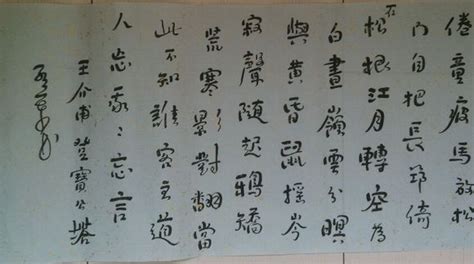 倦童疲馬放松
门自把長筇倚
松根江月轉空為
白晝嶺雲分暝
與黃昏鼠搖岑
寂聲隨起鴉矯
荒寒影對翻當
此不知誰客主道
人忘我〻忘言
王介甫登寶公塔